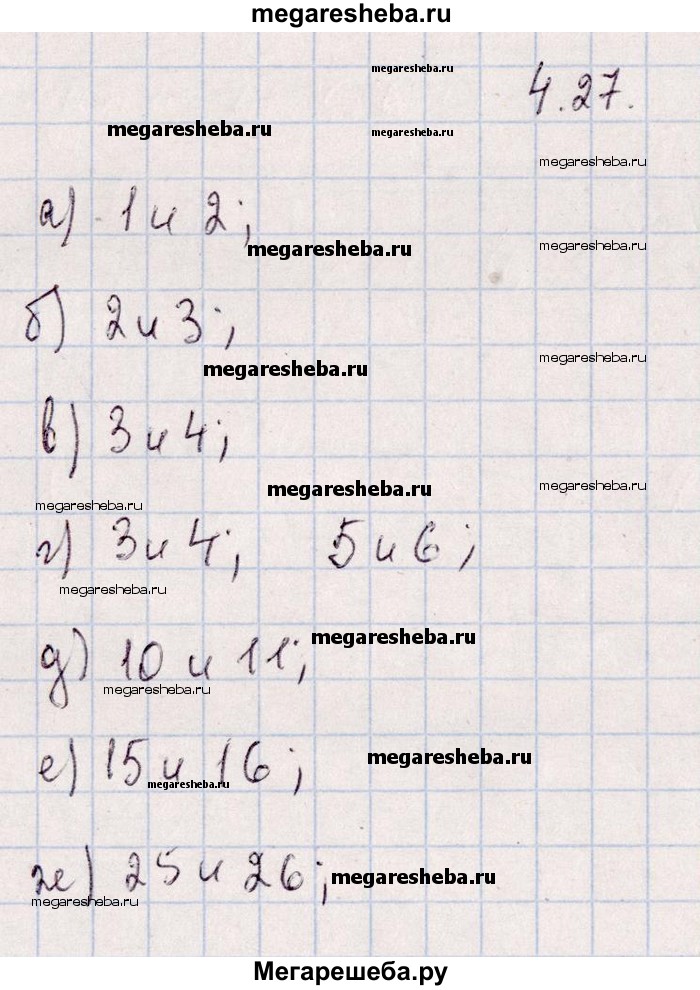 megaresheba.ru
megaresheba.ru
4.27.
megaresheba.ru
megaresheba.ru
megaresheba.ru
а) 1 и 2;
megaresheba.ru
megaresheba.ru
б) 2 и 3;
megaresheba.ru
megaresheba.ru
в) 3 и 4;
megaresheba.ru
megaresheba.ru
megaresheba.ru
г) 3 и 4; 5 и 6;
megaresheba.ru
д) 10 и 11;
megaresheba.ru
megaresheba.ru
е) 15 и 16;
megaresheba.ru
megaresheba.ru
ж) 25 и 26;
megaresheba.ru
megaresheba.ru
Мегарешеба.ру